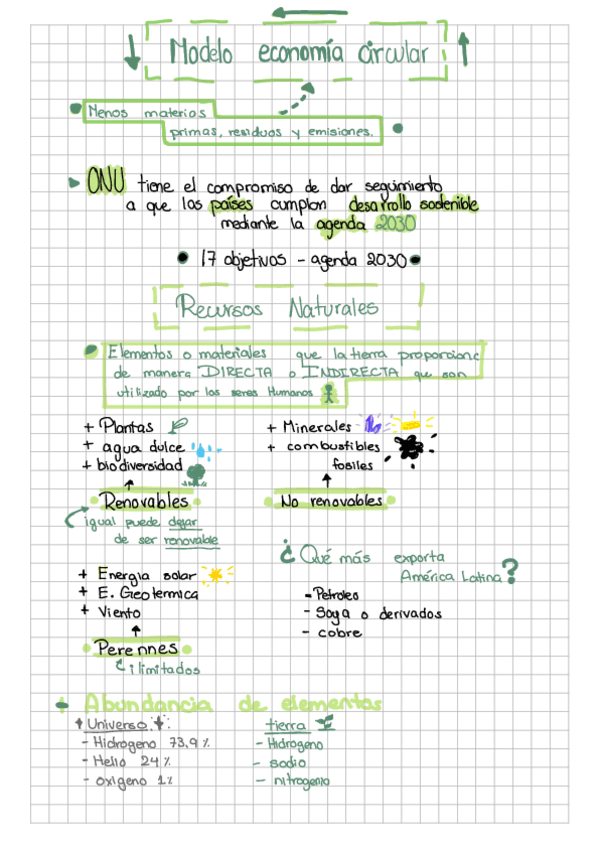 Modelo economía circular
Menos materias
primas, residuos y emisiones.
ONU tiene el compromiso de dar seguimiento
a que los países cumplan desarrollo sostenible
mediante la agenda 2030
17 objetivos - agenda 2030
Recursos Naturales
Elementos o materiales que la tierra proporciona
de manera DIRECTA o INDIRECTA que son
utilizado por los seres Humanos
+ Plantas
+ agua dulce
+ biodiversidad
Renovables
igual puede dejar
de ser renovable
+ Minerales
+ combustibles
fosiles
No renovables
+ Energia solar
+ E. Geotermica
+ Viento
Perennes
ilimitados
¿Qué más exporta
América Latina?
- Petroleo
- Soya o derivados
- cobre
+ Abundancia de elementos
Universo:
- Hidrogeno 73,9 %
- Helio 24 %
- oxigeno 1%
tierra
- Hidrogeno
- sodio
- nitrogenio